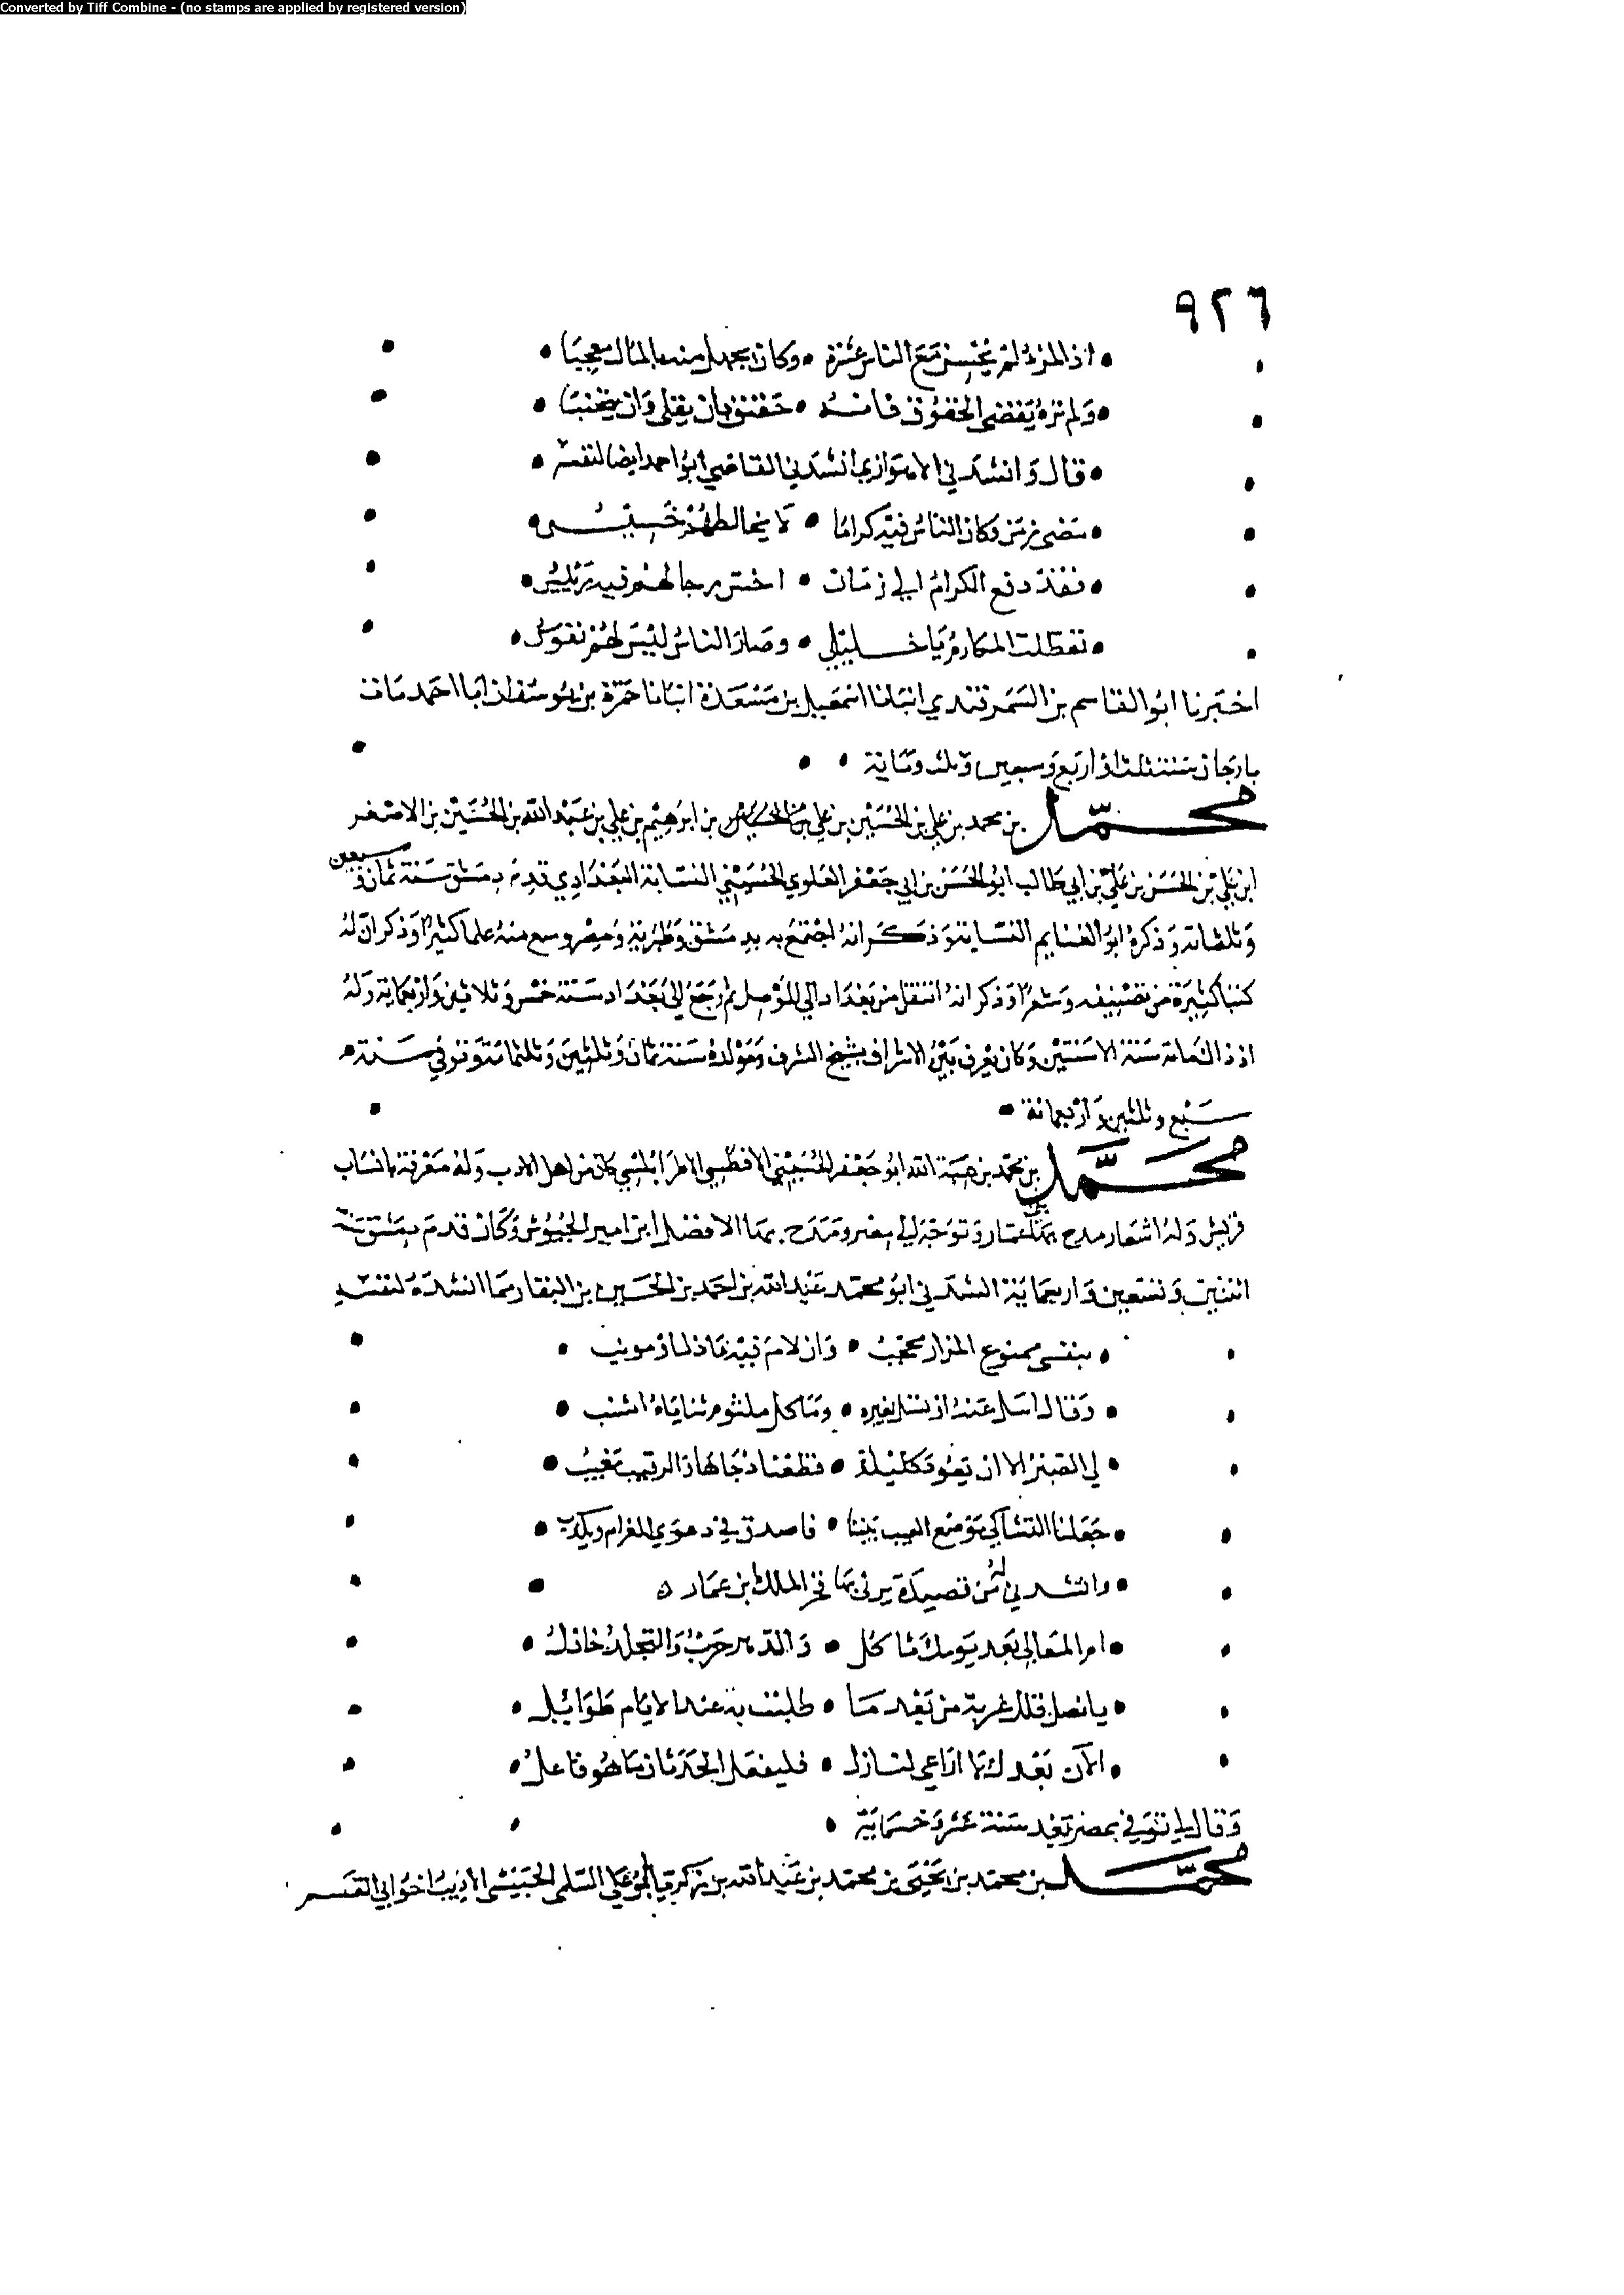 Converted by Tiff Combine - (no stamps are applied by registered version)
٩٢٦
اذا المرء لم يحسن مع الناس عشرة • وكان بجهل منه بالمال معجبا
ولم تره يقضى الحقوق فانه • حقيق بان يقلى وان يتجنبا
قال وانشدني الاهوازي انشدني القاضي ابو احمد ايضا لنفسه
مضى زمن وكان الناس فيه كراما • لا يخالطهم خسيس
فقد دفع الكرام الى زمان • اخس رجالهم فيه رئيس
تعطلت المكارم يا خليلي • وصار الناس ليس لهم نفوس
اخبرنا ابو القاسم بن السمرقندي انبانا اسمعيل بن مسعدة انبانا حمزة بن يوسف ان ابا احمد مات
بارجان سنة ثلث او اربع وسبعين وثلث ومائة
محمد بن محمد بن علي بن الحسين بن علي بن ابرهيم بن علي بن عبد الله بن الحسين بن الاصغر
ابن علي بن الحسن بن علي بن ابي طالب ابو الحسن بن ابي جعفر العلوي الحسيني النسابة البغدادي قدم دمشق سنة ثمان وسبعين
وثلثمائة وذكره ابو الغنايم النسابة وذكر انه اجتمع به بدمشق وطبرية ومصر وسمع منه علما كثيرا وذكر ان له
كتبا كثيرة من تصنيفه وشعرا وذكر انه انتقل من بغداد الى الموصل ثم رجع الى بغداد سنة خمس وثلاثين واربعماية وله
اذ ذاك مائة سنة الا سنتين وكان يعرف بين الاشراف بشيخ الشرف ومولده سنة ثمان وثلثين وثلثمائة وتوفي سنة
سبع وثلثين واربعمائة
محمد بن محمد بن هبة الله ابو جعفر الحسيني الافطسي الاطرابلسي كان من اهل الادب وله معرفة بانساب
قريش وله اشعار مدح بها بني عمار وتوجه الى مصر ومدح بها الافضل ابن امير الجيوش وكان قدم دمشق سنة
اثنتين وتسعين واربعماية انشدني ابو محمد عبد الله بن احمد بن الحسين بن النقار مما انشده لنفسه
بنفسى ممنوع المزار محجب • وان لام فيه عاذل او مونب
وقال اسل عنه او تسل بغيره • وما كل ملثوم ثناياه اشنب
لي الصبر الا ان يعود كليلة • قطعنا دجاها والرقيب مغيب
جعلنا التشاكي موضع العيب بيننا • فاصدق في دعوى الغرام ويكذب
وانشدني له من قصيدة يرثى بها فخر الملك بن عمار
ام المعالى بعد يومك ثاكل • والدهر حرب والتجلد خاذل
يا نصل فلل غربه من بعد ما • طلبت به عند الايام طوايل
الآن بعدك ما اراعى لنازل • فليفعل الحدثان ما هو فاعل
وقال لي توفي بمصر بعد سنة عشر وخمسماية
محمد بن محمد بن يحيى بن محمد بن عبد الله بن زكريا ابو علي السلمى الحبيشى الاديب اخو ابي القسم